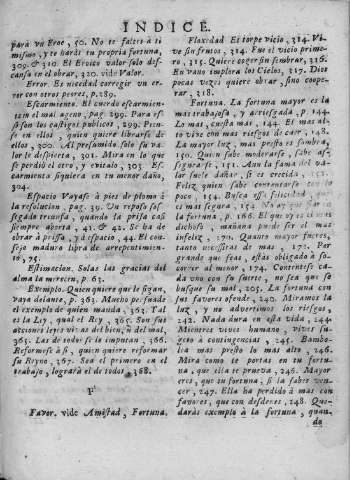 INDICE.
para vn Eroe, 50. No te faltes à ti
mismo, y te haràs tu propria fortuna,
309. & 310. El Eroico valor solo des-
cansa en el obrar, 320. vide Valor.
Error. Es necedad corregir un er-
ror con otros peores, p. 289.
Escarmiento. El cuerdo escarmien-
ta en el mal ageno, pag. 299. Para es-
so son los castigos publicos, 299. Pense-
se en ellos quien quiere librarse de
ellos, 300. Al presumido solo su va-
lor le despierta, 301. Mira en lo que
se perdiò el otro, y estàlo, 303. Es-
carmienta siquiera en tu menor daño,
304.
Espacio Vayase à pie de plomo à
la resolucion, pag. 39. Un reposo sos-
segado triunfa, quando la prisa casi
siempre aborta, 41. & 42. Se ha de
obrar à prissa, y de espacio, 44. El con-
sejo maduro libra de arrepentimien-
to, 75.
Estimacion. Solas las gracias del
alma la merecen, p. 63.
Exemplo. Quien quiere que le sigan,
vaya delante, p. 363. Mucho persuade
el exemplo de quien manda, 363. Tal
es la Ley, qual el Rey, 365. Son sus
acciones leyes vivas del bien, ù del mal,
365. Las de todos se le imputan, 366.
Reformese à sì, quien quiere reformar
su Reyno, 367. Sea el primero en el
trabajo, lograrà el de todos, 368.
F
Favor. vide Amistad, Fortuna.
Flaxedad Es torpe vicio, 314. Vi-
ve sin frutos, 314. Fue el vicio prime-
ro, 315. Quiere coger sin sembrar, 316.
En vano implora los Cielos, 317. Dios
pocas vezes quiere obrar, sino coope-
rar, 318.
Fortuna. La fortuna mayor es la
mas trabajosa, y arriesgada, p. 144.
Lo mas, cuesta mas, 144. El mas al-
to vive con mas riesgos de caer, 148.
La mayor luz, mas presto es sombra,
150. Quien sabe moderarse, sabe as-
segurarse, 151. Aun la fama del va-
lor suele dañar, si es crecida, 151.
Feliz quien sabe contentarse con lo
poco, 154. Busca essa felicidad, que
es mas segura, 154. No ay
la fortuna, p. 166. El que oy es el mas
dichoso, mañana puede ser el mas
infeliz, 170. Quanto mayor fueres,
tanto necessitas de mas, 171. Por
grande que seas, estàs obligado à so-
correr al menor, 174. Contentese ca-
da vno con su suerte, no sea que se
busque su mal, 203. La fortuna con
sus favores ofende, 240. Miramos la
luz, y no advertimos los riesgos,
242. Nada dura en esta vida, 244.
Mientres vives humano, vives su-
geto à contingencias, 245. Bambo-
lèa mas presto lo mas alto, 246.
Mira como te portas en tu fortu-
na, que ella te prueva, 246. Mayor
eres, que tu fortuna, si la sabes ven-
cer, 247. Ella ha perdido à mas con
favores, que con desdenes, 248. Que-
daràs exemplo à la fortuna, quan-
do